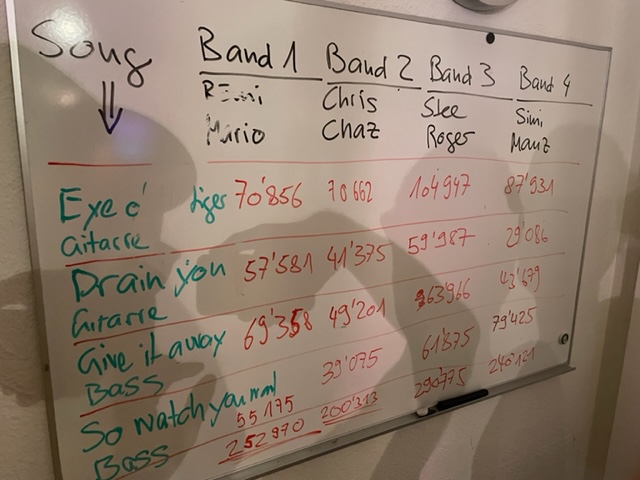 Song Band 1 Band 2 Band 3 Band 4
⇓ Remi Chris Skee Simi
Mario Chaz Roger Manz
Eye o' tiger 70'856 70662 104'947 87'931
Gitarre
Drain you 57'581 41'375 59'987 29'086
Gitarre
Give it away 69'358 49'201 63'966 43'679
Bass
So watch you want 55175 39'075 61'875 79'425
Bass 252970 200'313 290775 240'121